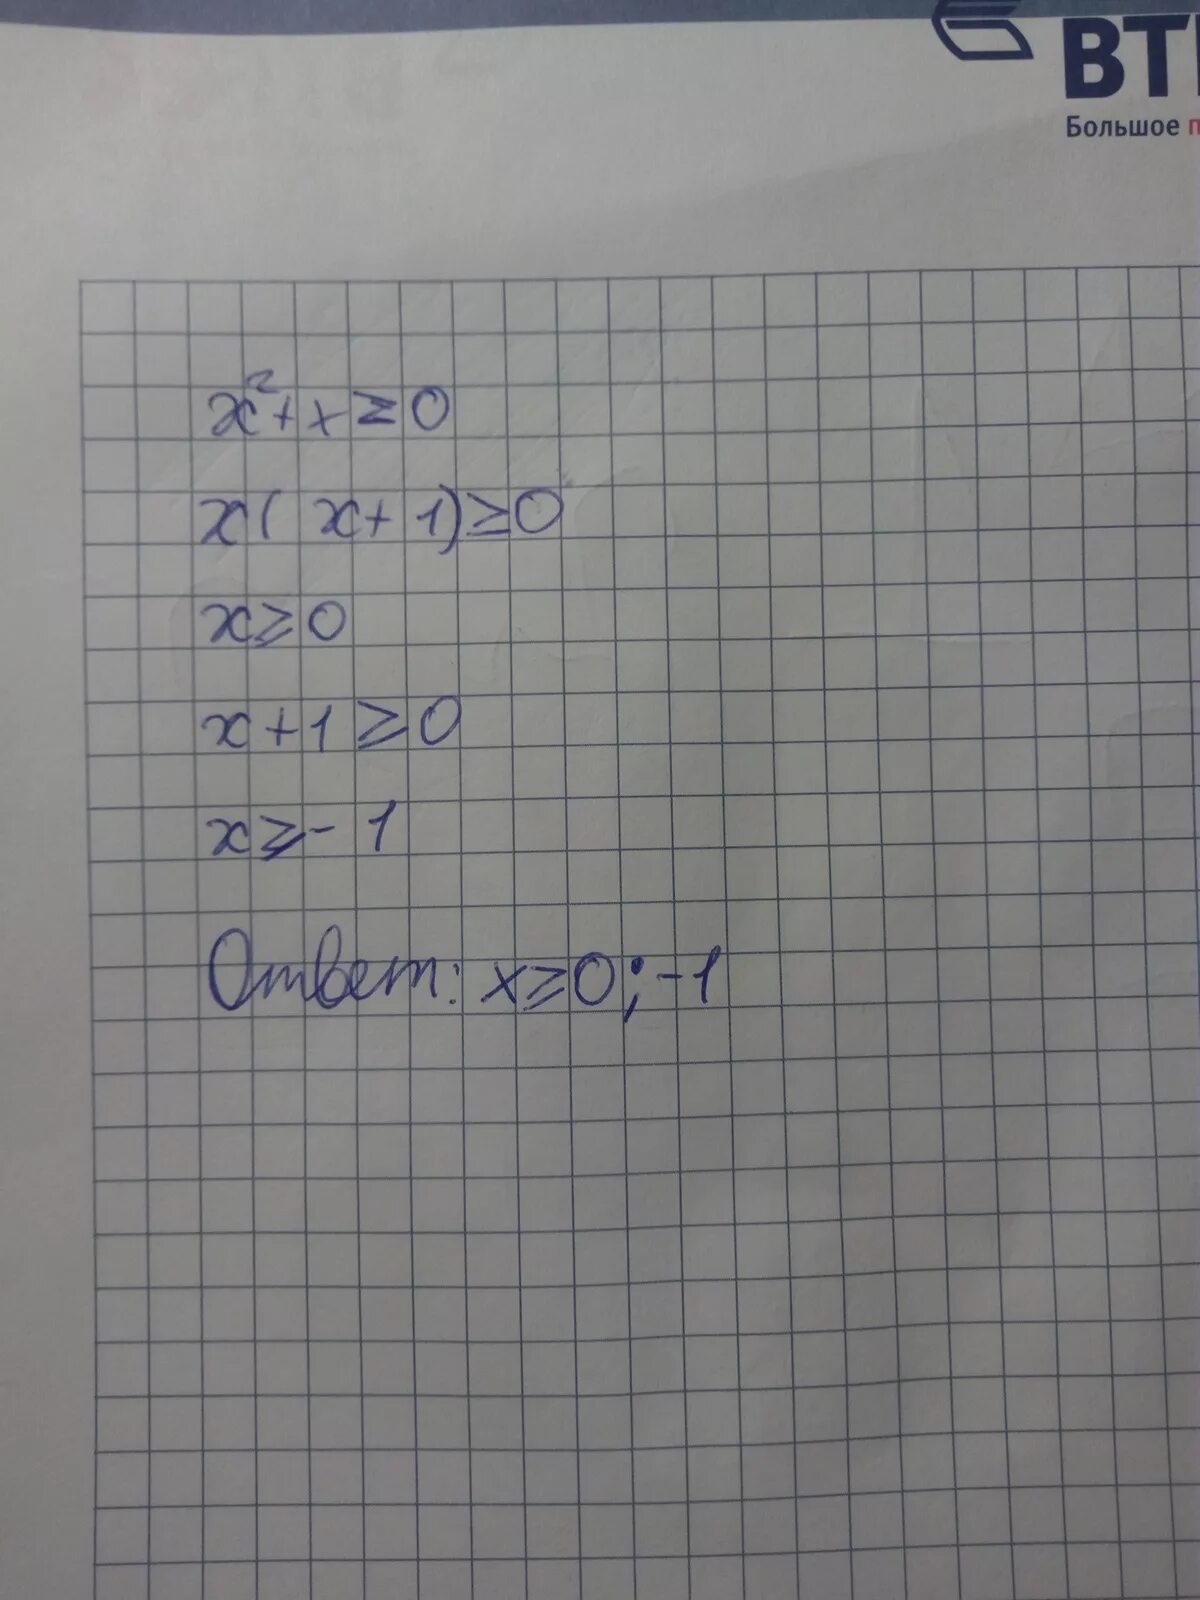 ВТ
Большое п
x²+x≥0
x( x+1)≥0
x≥0
x+1≥0
x≥-1
Ответ: x≥0;-1